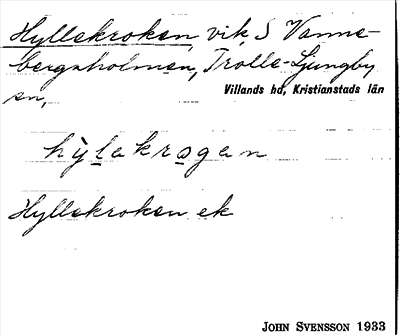 Hyllekroken, vik, S Vanne-
bergaholmen, Trolle-Ljungby
sn,
Villands hd, Kristianstads län
hỳlakrogan
Hyllekroken ek
JOHN SVENSSON 1933